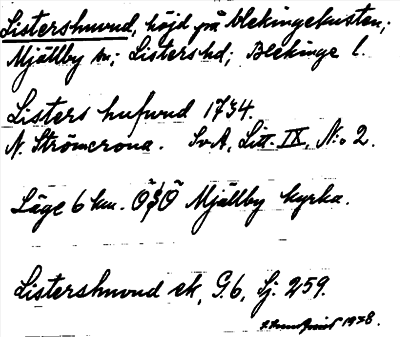 Listershuvud, höjd på Blekingekusten;
Mjällby sn; Listers hd; Blekinge l.
Listers hufwud 1734.
N. Strömcrona. SvA, Litt. IX, No 2.
Läge 6 km. OSO Mjällby kyrka.
Listershuvud ek, G.6, Sj. 259.
1938.